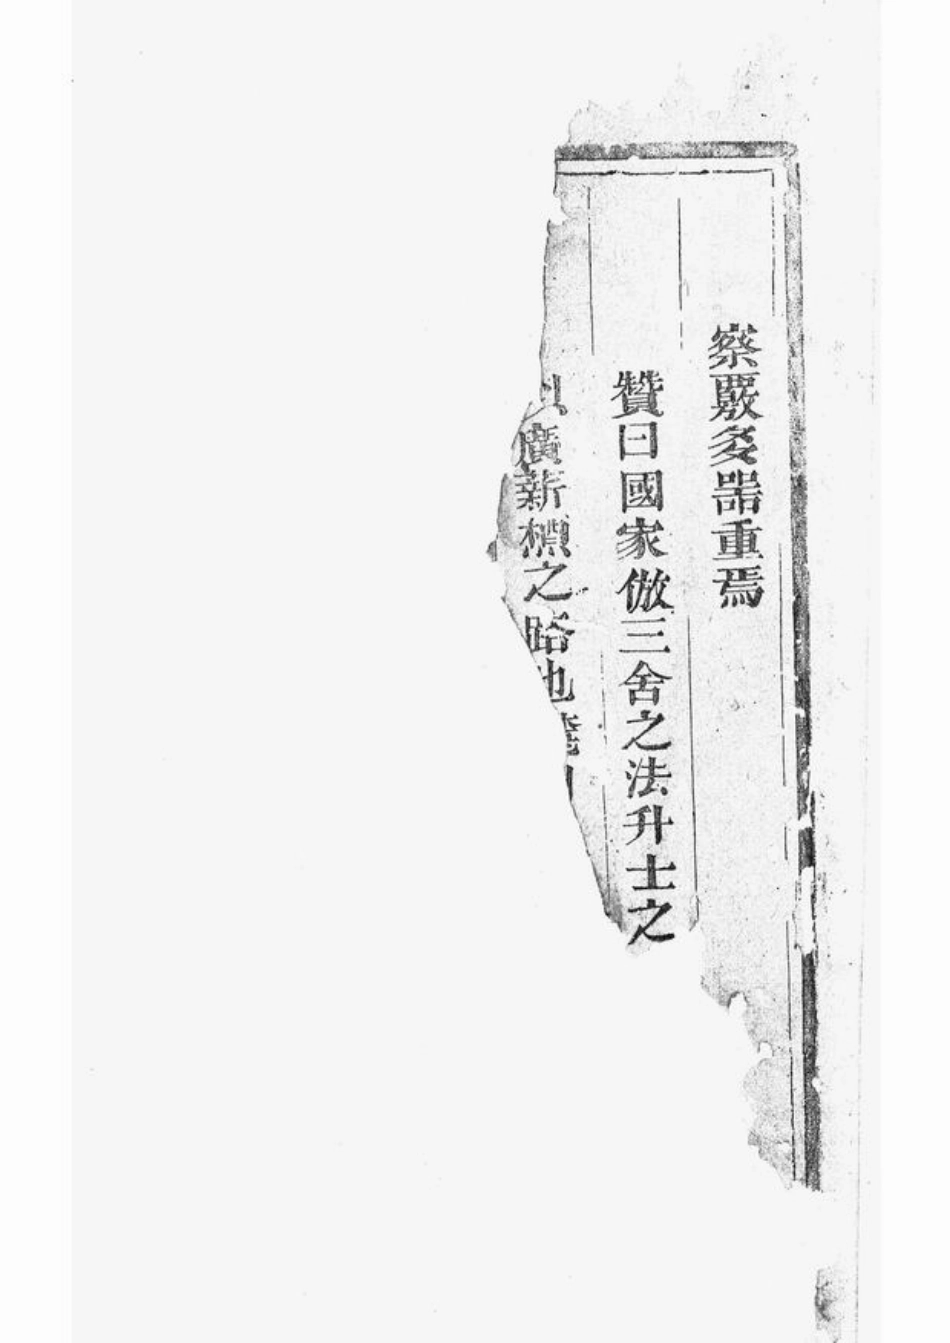 察覈多噐重焉
贊曰國家倣三舍之法升士之
廣薪槱之路也